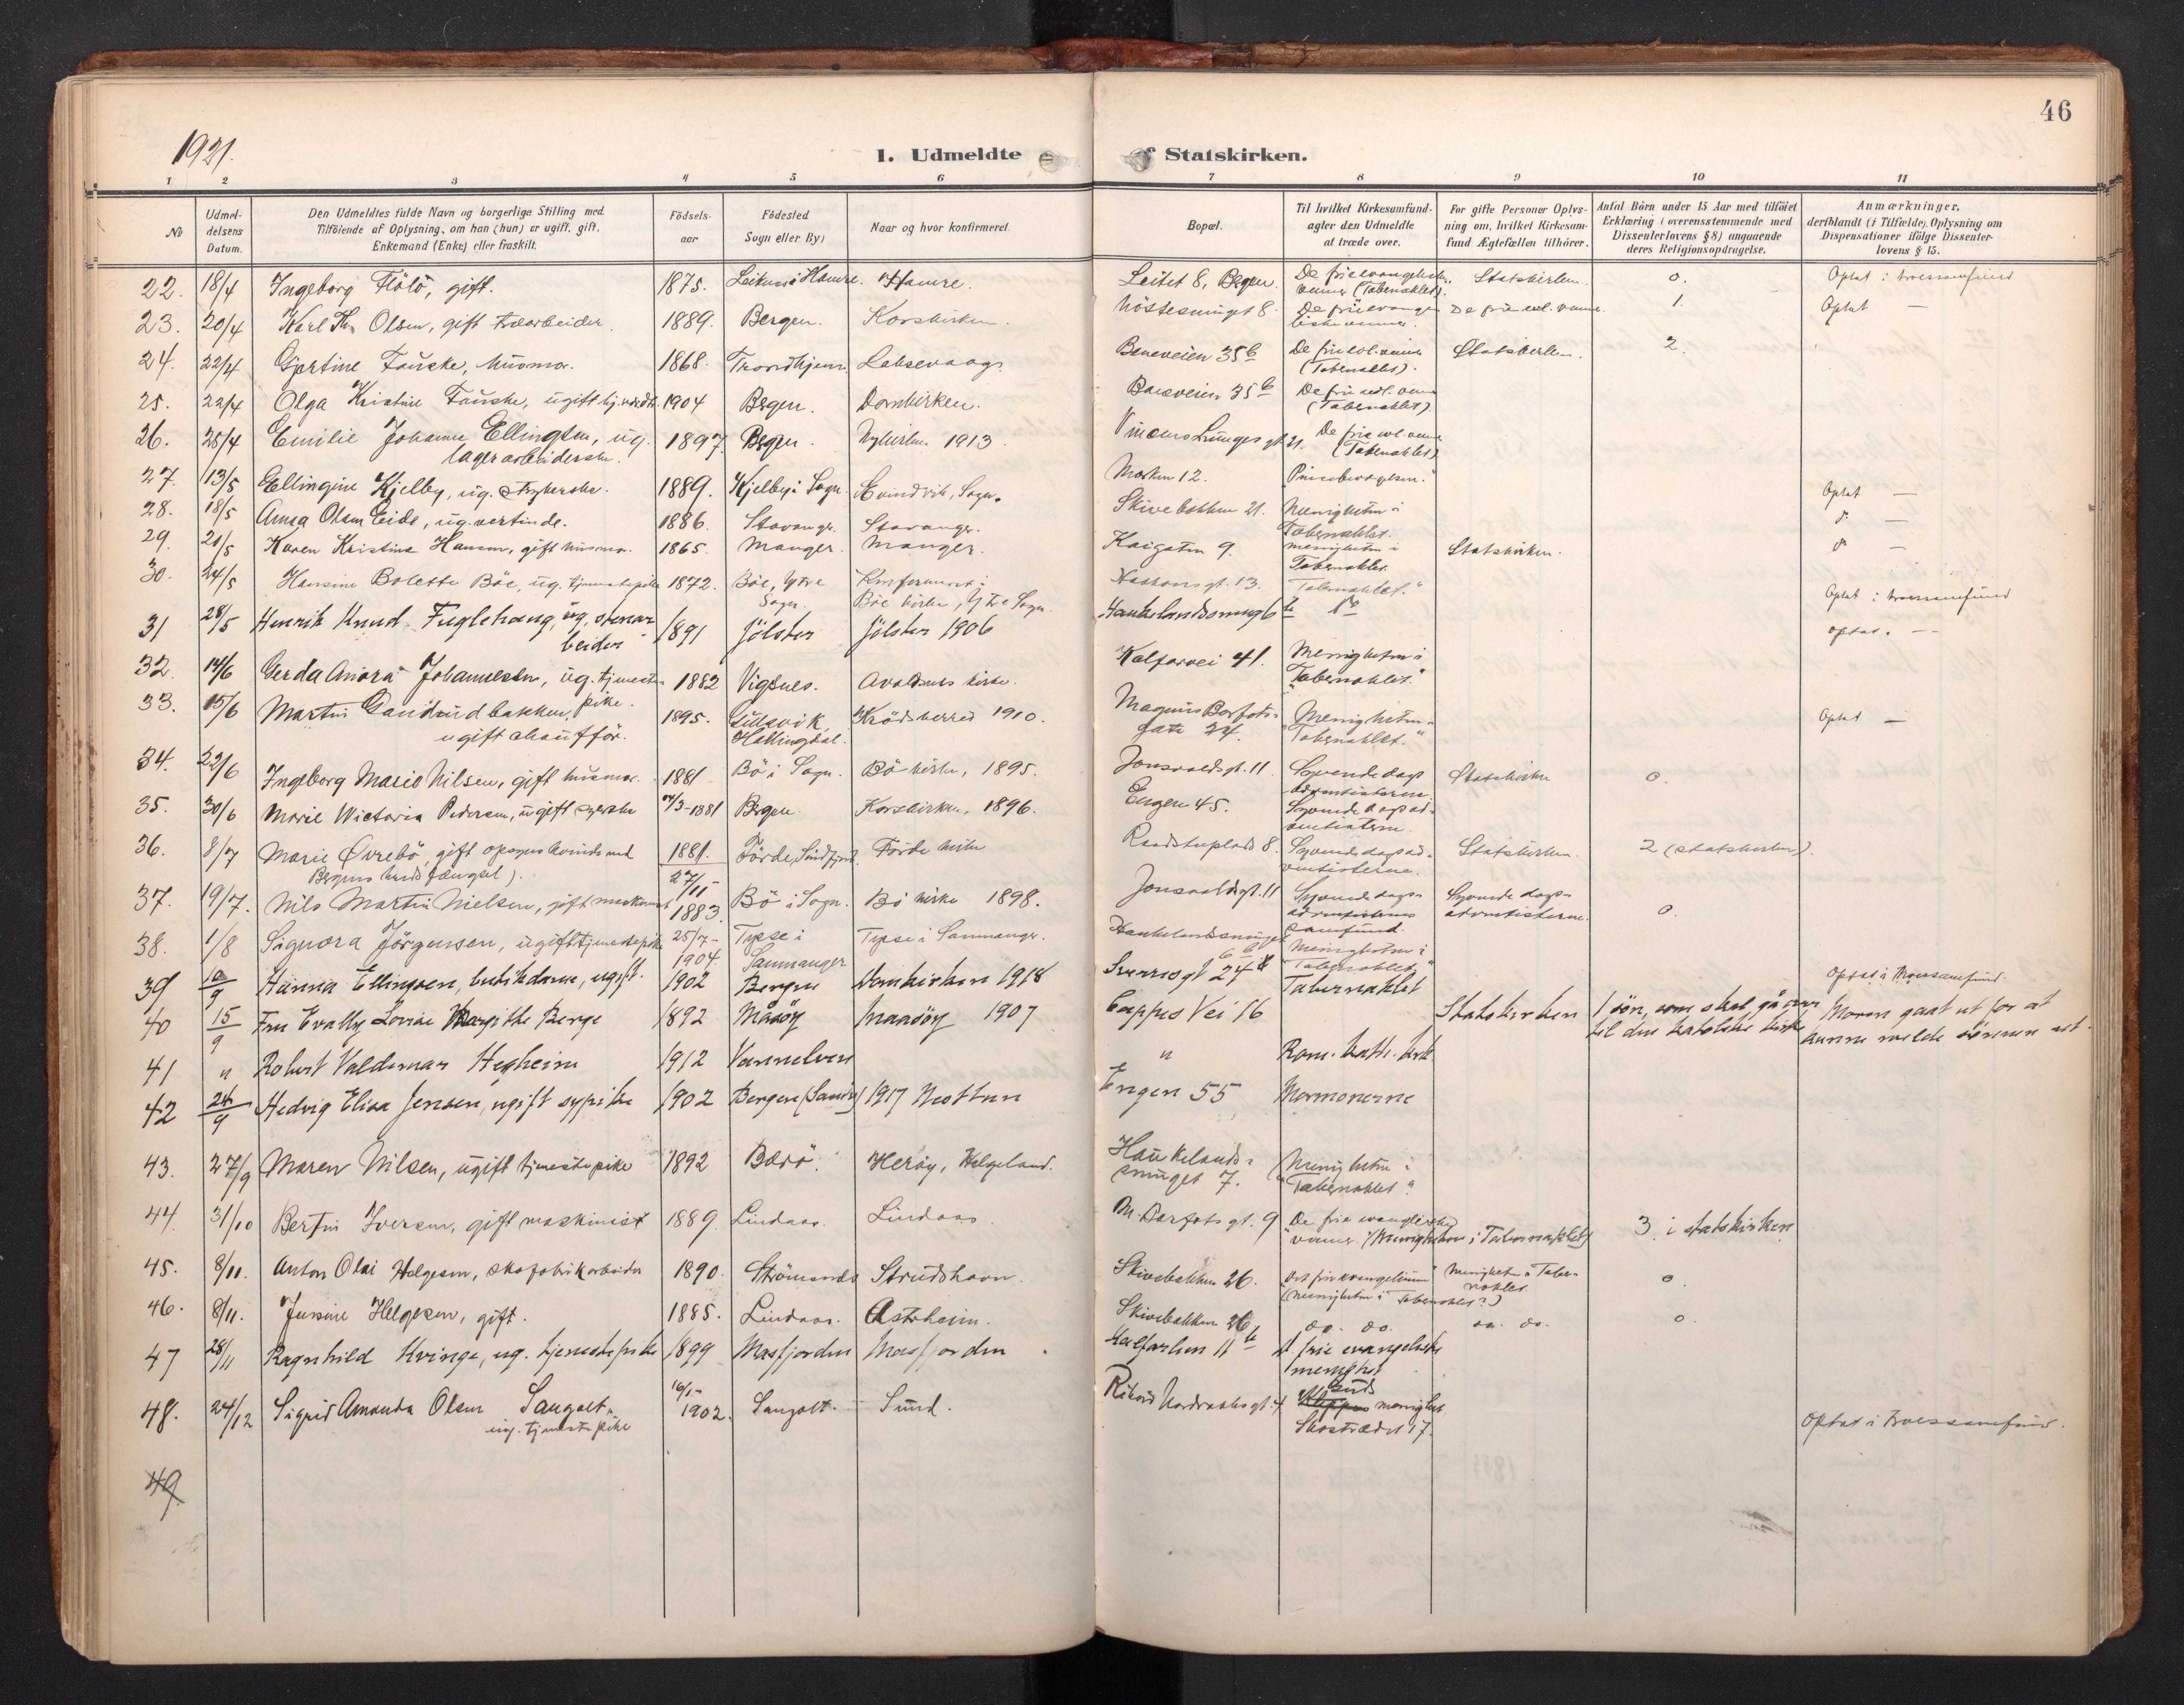 46
1921.
1. Udmeldte af Statskirken.
1 2 3 4 5 6 7 8 9 10 11
No
Udmel-
delsens
Datum.
Den Udmeldtes fulde Navn og borgerlige Stilling med
Tilföiende af Oplysning, om han (hun) er ugift, gift,
Enkemand (Enke) eller fraskilt.
Födsels-
aar
Födested
Sogn eller By)
Naar og hvor konfirmeret.
Bopæl.
Til hvilket Kirkesamfund-
agter den Udmeldte
at træde over.
For gifte Personer Oplys-
ning om, hvilket Kirkesam-
fund Ægtefællen tilhörer.
Antal Börn under 15 Aar med tilföiet
Erklæring i overensstemmende med
Dissenterlovens § 8) angaaende
deres Religionsopdragelse.
Anmærkninger,
deriblandt (i Tilfælde) Oplysning om
Dispensationer ifölge Dissenter-
lovens § 15.
22. 18/4 Ingeborg Flötö, gift. 1875. Hamre. Leitet 8, Bergen. De frie evangeliske venner (Tabernaklet). Statskirken. 0. Optat i troessamfund
23. 20/4 Karl Olsen, gift træarbeider. 1889. Bergen. Korskirken. De frie evangeliske venner. De frie evl. venner. 1. Optat —
24. 22/4 Gjertine Fauske, husmor. 1868. Trondhjem Laksevaag. 35b De frie evl. venner (Tabernaklet). Statskirken. 2.
25. 22/4 Olga Kristine Fauske, ugift 1904 Bergen. Domkirken. 35b De frie evl. venner (Tabernaklet).
26. 25/4 Emilie Johanne Ellingsen, ug. lagerarbeiderske. 1897 Bergen. Nykirken 1913. Vincens Lunges gt. 21. De frie evl. venner (Tabernaklet)
27. 13/5 Ellingine Kjelby, ug. strykerske. 1889. Kjelby i Sogn. Eivindvik, Sogn. Marken 12. Pinsebevægelsen. Optat —
28. 18/5 Anna Olsen Eide, ug. vertinde. 1886. Stavanger. Stavanger. Skivebakken 21. Menigheten i Tabernaklet. —
29. 21/5 Karen Kristine Hansen, gift husmor. 1865. Manger. Manger. Kaigaten 9. Menigheten i Tabernaklet. Statskirken. —
30. 24/5 Hansine Bolette Böe, ug. tjenestepike 1872. Böe, Ytre Sogn. Konfirmeret i Böe kirke, Ytre Sogn. Haakonsgt. 13. "Tabernaklet." Optat i troessamfund
31 28/5 Henrik Knud Fuglehaug, ug, stenarbeider 1891 Jölster Jölster 1906 do optat. —
32. 14/6 Gerda Anora Johannesen, ug. tjenestepike. 1882 Vigsnes. Avaldsnes kirke. Kalfarvei 41. Menigheten i "Tabernaklet."
33. 15/6 Martin Sandrudbakken, ugift chaufför. 1895. Hallingdal. Krödsherred 1910. Magnus Barfots-gate 24. Menigheten "Tabernaklet." Optat —
34. 22/6 Ingeborg Marie Nilsen, gift husmor. 1881 Bö i Sogn. Bö kirke, 1895. Jonsvoldsgt. 11 Syvende dags adventisterne. Statskirken 0.
35. 30/6 Marie Wictoria Pedersen, ugift syerske 1881 Bergen. Korskirken, 1896. Engen 45. Syvende dags adventisterne.
36. 8/7 Marie Øvrebö, gift opsynskvinde ved Bergens kredsfængsel). 1881. Förde, Söndfjord. Förde kirke Raadstuplads 8. Syvende dags adventisterne. Statskirken. 2 (statskirken).
37. 19/7. Nils Martin Nielsen, gift 27/11-1883. Bö i Sogn. Bö kirke 1898. Jonsvoldsgt. 11 Syvende dags-adventisternes samfund. Syvende dags-adventisterne. 0.
38. 1/8 Signora Jörgensen, ugift tjenestepike 25/7-1904. Samnanger i Samnanger. Menigheten i "Tabernaklet."
39 10/9 Hanna Ellingsen, butikdame, ugift. 1902 Bergen Domkirken 1918 Sverresgt 24 Tabernaklet Optat i troessamfund.
40 15/9 Fru Evally Lovise Margithe Berge 1892 Maasöy Maasöy 1907 Cappes Vei 16 Statskirken 1 sön, som skal gå over til den katolske kirke Moren gaat ut for at kunne melde sönnen ut.
41 " Robert Valdemar Hegheim 1912 Vannelven " Rom. kath. kirke
42 24/9 Hedvig Elisa Jensen, ugift sypike 1902 Bergen 1917 Nesttun Engen 55 Mormonerne
43. 27/9 Maren Nilsen, ugift tjenestepike 1892 Herøy, Helgeland. Haukelands-smuget 7. Menigheten i "Tabernaklet".
44. 31/10 Bertin Iversen, gift maskinist 1889. Lindaas. Lindaas. M. Barfotsgt. 9 De frie evangeliske venner. (Menigheten i Tabernaklet) 3. i statskirken
45. 8/11. Anton Olai Helgesen, skofabrikarbeider 1890. Strömsnes Strudshavn. Skivebakken 26. Det frie evangelium (Menigheten i Tabernaklet) Menigheten i Tabernaklet. 0.
46. 8/11. Jensine Helgesen, gift. 1885. Lindaas. Austrheim. Skivebakken 26 do. do. do. do. 0.
47 28/11 Ragnhild Kvinge, ug. tjenestepike 1899 Masfjorden Masfjorden Kalfarlien 11b frie evangeliske menighet
48. 24/12 Sigrid Amanda Olsen Sangolt, ug. tjenestepike 1902. Sangolt. Sund. Rikard Nordraaksgt. 4 Guds menighet Skostrædet 17. Optat i troessamfund.
49.